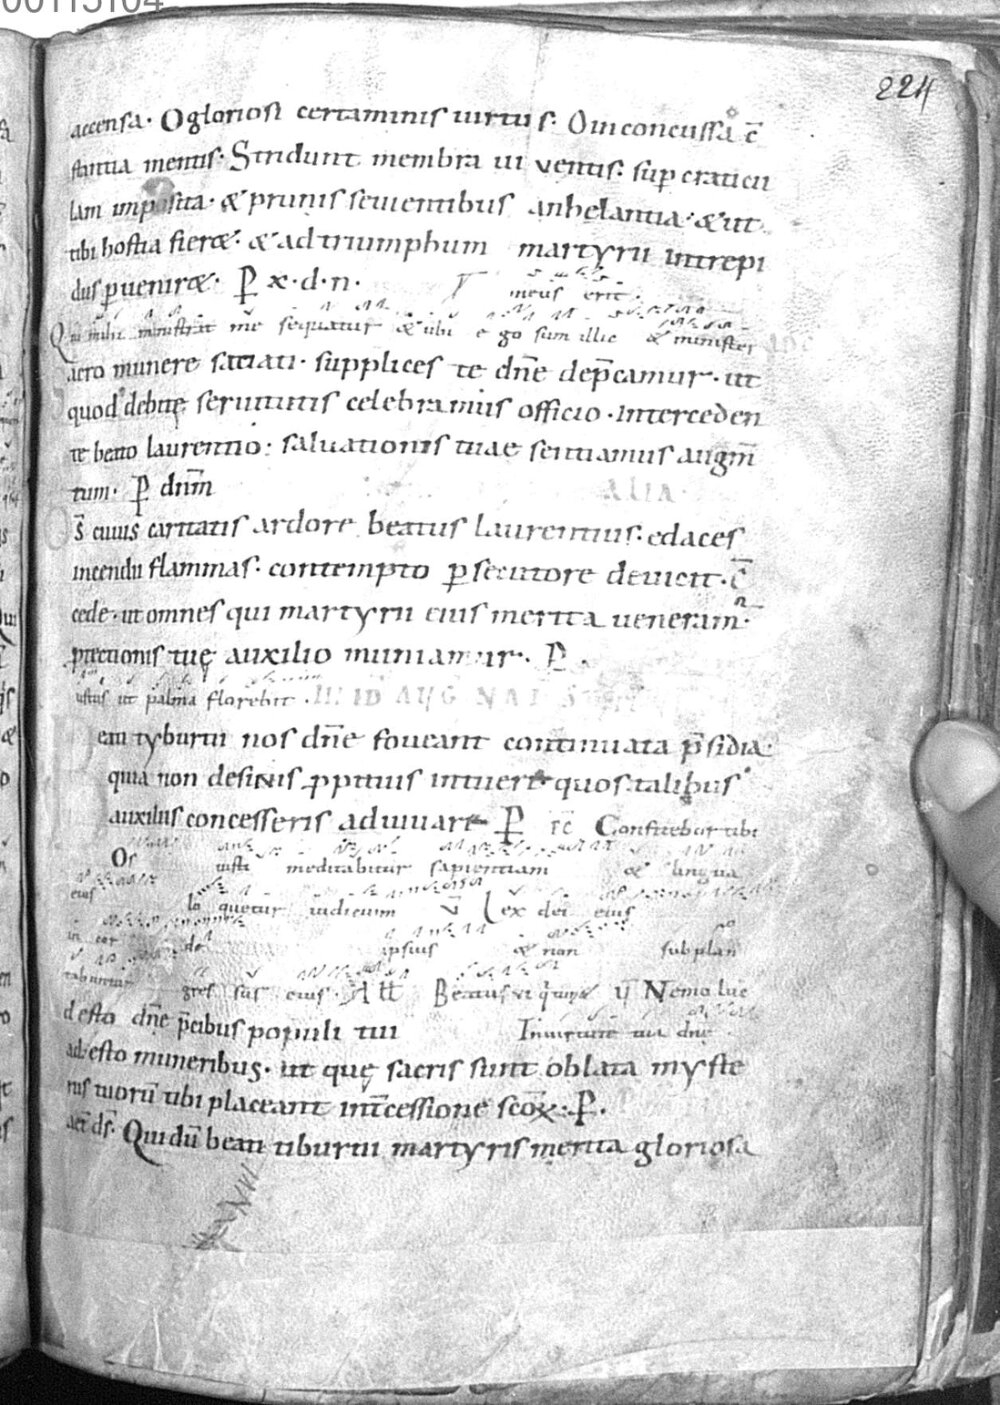 00115104
224
accensa. O gloriosi certaminis uirtus. O inconcussa c̄
stantia mentis. Stridunt membra uiuentis. sup craticu
lam imposita. & prunis seuientibus anhelantia. & ut
tibi hostia fier&. & ad triumphum martyrii intrepi
dus puenir&. P x. d. n. meus erit.
Qui mihi ministrat me sequatur & ubi ego sum illic & minister
acro munere satiati. supplices te dn̄e dep̄camur. ut
quod debitę seruitutis celebramus officio. interceden
te beato laurentio: saluationis tuae sentiamus augm̄
tum. P dnm̄ ALIA.
s̄ cuius caritatis ardore beatus laurentius. edaces
incendii flammas. contempto psecutore deuicit. c̄
cede. ut omnes qui martyrii eius merita ueneram.
ptectionis tuę auxilio muniamur. P.
ustus ut palma florebit. III ID AUG NAT S
eati tyburtii nos dn̄e foueant continuata p̄sidia.
quia non desinis ppitius intueri quos talibus
auxiliis concesseris adiuuari P rc̄ Confitebor tibi
Os iusti meditabitur sapientiam & lingua
eius loquetur iudicium v̄ Lex dei eius
in cor de ipsius & non subplan
tabuntur gressus eius. All Beatus ui
desto dn̄e p̄cibus populi tui In uirtute tua dn̄e
adesto muneribus. ut quę sacris sunt oblata myste
riis tuorū tibi placeant int̄cessione scōx. P.
aet̄ ds̄. Qui dū beati tiburtii martyris merita gloriosa